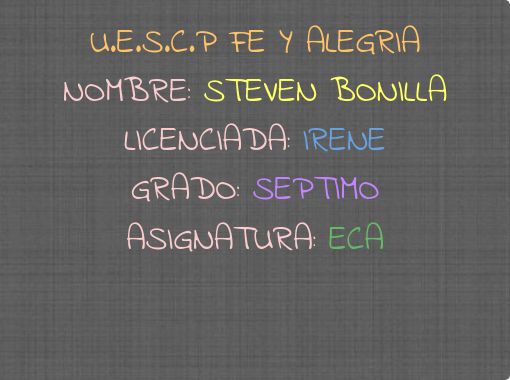 U.E.S.C.P FE Y ALEGRIA
NOMBRE: STEVEN BONILLA
LICENCIADA: IRENE
GRADO: SEPTIMO
ASIGNATURA: ECA